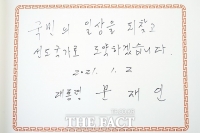 국민의 일상을 되찾고
선도국가로 도약하겠습니다.
2021. 1. 2
대통령 문재인
THE FACT